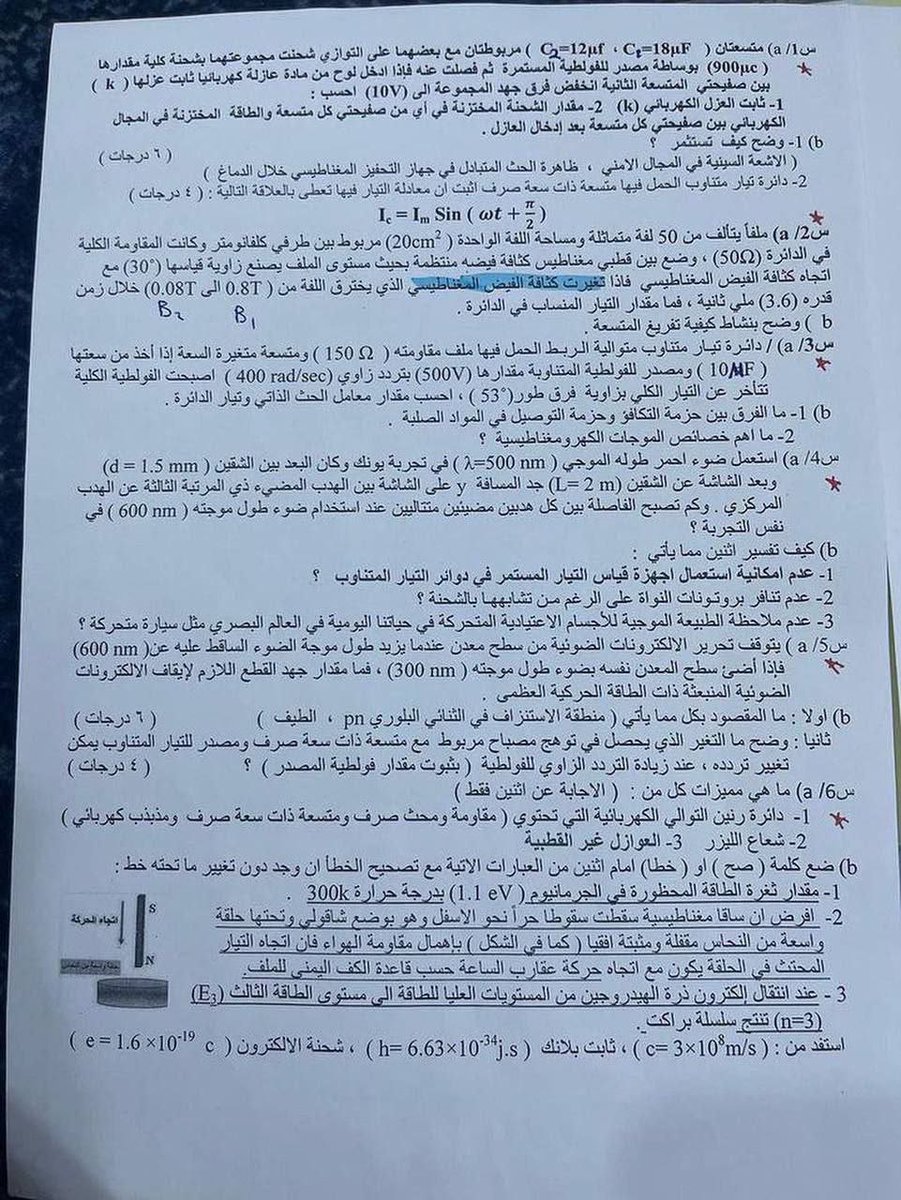 س1/ a) متسعتان ( C₁=18μF ، C₂=12μf ) مربوطتان مع بعضهما على التوازي شحنت مجموعتهما بشحنة كلية مقدارها
( 900μc) بوساطة مصدر للفولطية المستمرة ثم فصلت عنه فإذا ادخل لوح من مادة عازلة كهربائيا ثابت عزلها ( k )
بين صفيحتي المتسعة الثانية انخفض فرق جهد المجموعة الى (10V) احسب :
1- ثابت العزل الكهربائي (k) 2- مقدار الشحنة المختزنة في أي من صفيحتي كل متسعة والطاقة المختزنة في المجال
الكهربائي بين صفيحتي كل متسعة بعد إدخال العازل .
b) 1- وضح كيف تستثمر ؟ ( ٦ درجات )
( الاشعة السينية في المجال الامني ، ظاهرة الحث المتبادل في جهاز التحفيز المغناطيسي خلال الدماغ )
2- دائرة تيار متناوب الحمل فيها متسعة ذات سعة صرف اثبت ان معادلة التيار فيها تعطى بالعلاقة التالية : ( ٤ درجات )
I_c = I_m Sin ( ωt + π/2 )
س2/ a) ملفاً يتألف من 50 لفة متماثلة ومساحة اللفة الواحدة ( 20cm²) مربوط بين طرفي كلفانومتر وكانت المقاومة الكلية
في الدائرة (50Ω) ، وضع بين قطبي مغناطيس كثافة فيضه منتظمة بحيث مستوى الملف يصنع زاوية قياسها (30°) مع
اتجاه كثافة الفيض المغناطيسي فاذا تغيرت كثافة الفيض المغناطيسي الذي يخترق اللفة من ( 0.8T الى 0.08T) خلال زمن
قدره (3.6) ملي ثانية ، فما مقدار التيار المنساب في الدائرة .
B₁ B₂
b ) وضح بنشاط كيفية تفريغ المتسعة .
س3/ a) / دائرة تيار متناوب متوالية الربط الحمل فيها ملف مقاومته ( 150 Ω ) ومتسعة متغيرة السعة إذا أخذ من سعتها
( 10μF ) ومصدر للفولطية المتناوبة مقدارها (500V) بتردد زاوي (400 rad/sec ) اصبحت الفولطية الكلية
تتأخر عن التيار الكلي بزاوية فرق طور(53°) ، احسب مقدار معامل الحث الذاتي وتيار الدائرة .
b) 1- ما الفرق بين حزمة التكافؤ وحزمة التوصيل في المواد الصلبة .
2- ما اهم خصائص الموجات الكهرومغناطيسية ؟
س4/ a) استعمل ضوء احمر طوله الموجي ( λ=500 nm) في تجربة يونك وكان البعد بين الشقين ( d = 1.5 mm)
وبعد الشاشة عن الشقين (L= 2 m) جد المسافة y على الشاشة بين الهدب المضيء ذي المرتبة الثالثة عن الهدب
المركزي . وكم تصبح الفاصلة بين كل هدبين مضيئين متتاليين عند استخدام ضوء طول موجته ( 600 nm ) في
نفس التجربة ؟
b) كيف تفسير اثنين مما يأتي :
1- عدم امكانية استعمال اجهزة قياس التيار المستمر في دوائر التيار المتناوب ؟
2- عدم تنافر بروتونات النواة على الرغم من تشابهها بالشحنة ؟
3- عدم ملاحظة الطبيعة الموجية للأجسام الاعتيادية المتحركة في حياتنا اليومية في العالم البصري مثل سيارة متحركة ؟
س5/ a ) يتوقف تحرير الالكترونات الضوئية من سطح معدن عندما يزيد طول موجة الضوء الساقط عليه عن( 600 nm)
فإذا أضئ سطح المعدن نفسه بضوء طول موجته ( 300 nm) ، فما مقدار جهد القطع اللازم لإيقاف الالكترونات
الضوئية المنبعثة ذات الطاقة الحركية العظمى .
b) اولا : ما المقصود بكل مما يأتي ( منطقة الاستنزاف في الثنائي البلوري pn ، الطيف ) ( ٦ درجات )
ثانيا : وضح ما التغير الذي يحصل في توهج مصباح مربوط مع متسعة ذات سعة صرف ومصدر للتيار المتناوب يمكن
تغيير تردده ، عند زيادة التردد الزاوي للفولطية ( بثبوت مقدار فولطية المصدر ) ؟ ( ٤ درجات )
س6/ a) ما هي مميزات كل من : ( الاجابة عن اثنين فقط )
1- دائرة رنين التوالي الكهربائية التي تحتوي ( مقاومة ومحث صرف ومتسعة ذات سعة صرف ومذبذب كهربائي )
2- شعاع الليزر 3- العوازل غير القطبية
b) ضع كلمة ( صح ) او ( خطا) امام اثنين من العبارات الاتية مع تصحيح الخطأ ان وجد دون تغيير ما تحته خط :
1- مقدار ثغرة الطاقة المحظورة في الجرمانيوم ( 1.1 eV) بدرجة حرارة 300k .
2- افرض ان ساقا مغناطيسية سقطت سقوطا حراً نحو الاسفل وهو بوضع شاقولي وتحتها حلقة
واسعة من النحاس مقفلة ومثبتة افقيا ( كما في الشكل ) بإهمال مقاومة الهواء فان اتجاه التيار
المحتث في الحلقة يكون مع اتجاه حركة عقارب الساعة حسب قاعدة الكف اليمنى للملف.
S
اتجاه الحركة
N
3 - عند انتقال إلكترون ذرة الهيدروجين من المستويات العليا للطاقة الى مستوى الطاقة الثالث (E₃)
(n=3) تنتج سلسلة براكت.
استفد من : ( c= 3×10⁸m/s ) ، ثابت بلانك ( h= 6.63×10⁻³⁴j.s ) ، شحنة الالكترون ( e = 1.6 ×10⁻¹⁹ c )